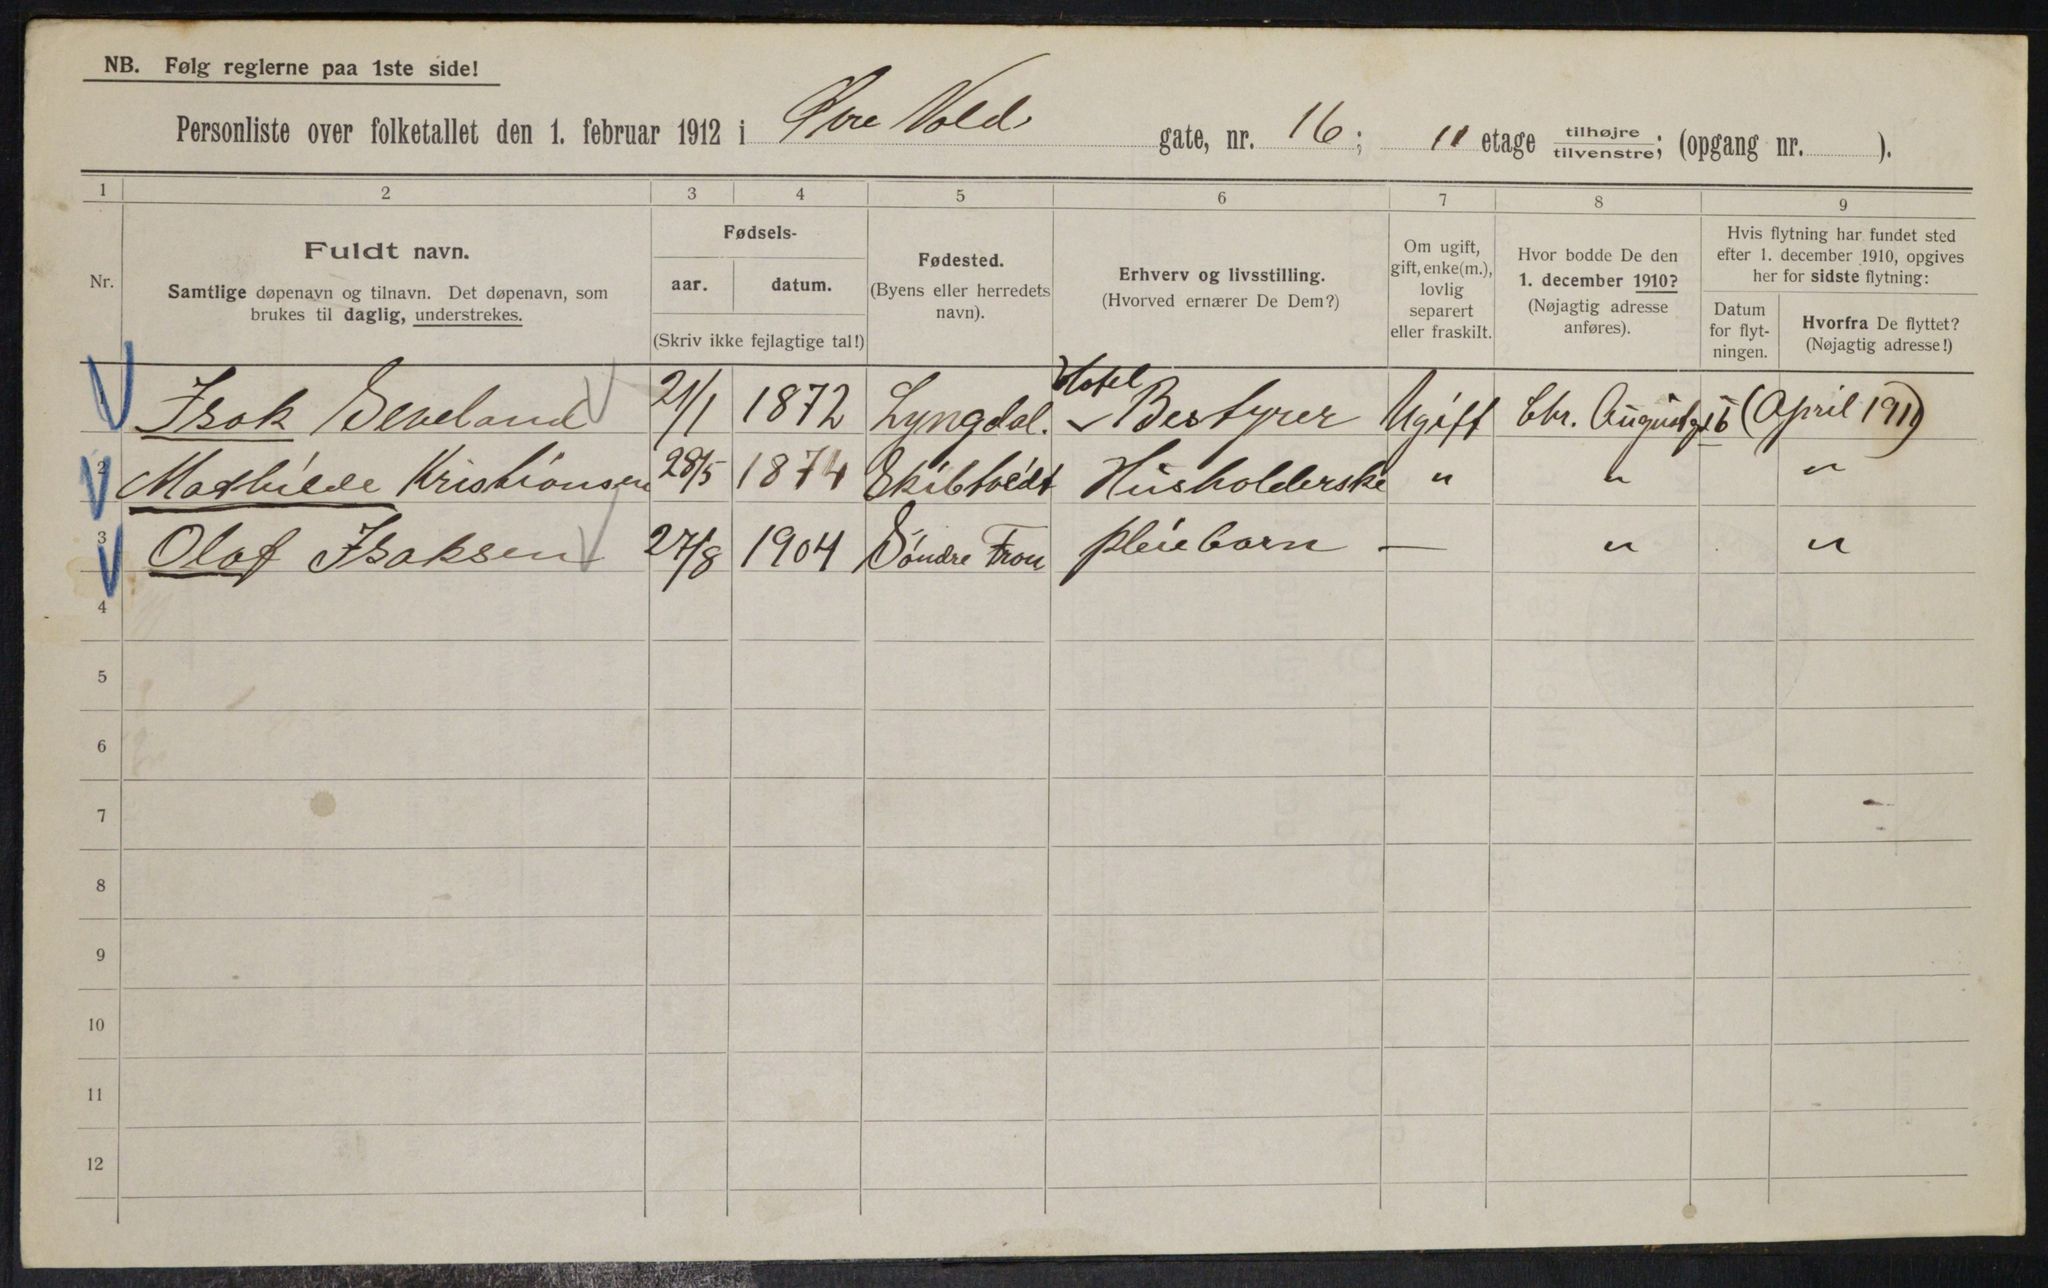 NB. Følg reglerne paa 1ste side!
Personliste over folketallet den 1. februar 1912 i Øvre Vold gate, nr. 16; II etage tilhøjre/tilvenstre; (opgang nr. ).
1 2 3 4 5 6 7 8 9
Nr.
Fuldt navn.
Samtlige døpenavn og tilnavn. Det døpenavn, som
brukes til daglig, understrekes.
Fødsels-
aar. datum.
(Skriv ikke fejlagtige tal!)
Fødested.
(Byens eller herredets
navn).
Erhverv og livsstilling.
(Hvorved ernærer De Dem?)
Om ugift,
gift, enke(m.),
lovlig
separert
eller fraskilt.
Hvor bodde De den
1. december 1910?
(Nøjagtig adresse
anføres).
Hvis flytning har fundet sted
efter 1. december 1910, opgives
her for sidste flytning:
Datum
for flyt-
ningen.
Hvorfra De flyttet?
(Nøjagtig adresse!)
1 Isak Eleveland 21/1 1872 Lyngdal. Hotel Bestyrer Ugift Chr. Augustgt 16 (April 1911)
2 Mathilde Kristiansen 28/5 1874 Skibtvedt Husholderske " " "
3 Olaf Isaksen 27/8 1904 Söndre Fron pleiebarn — " "
4
5
6
7
8
9
10
11
12